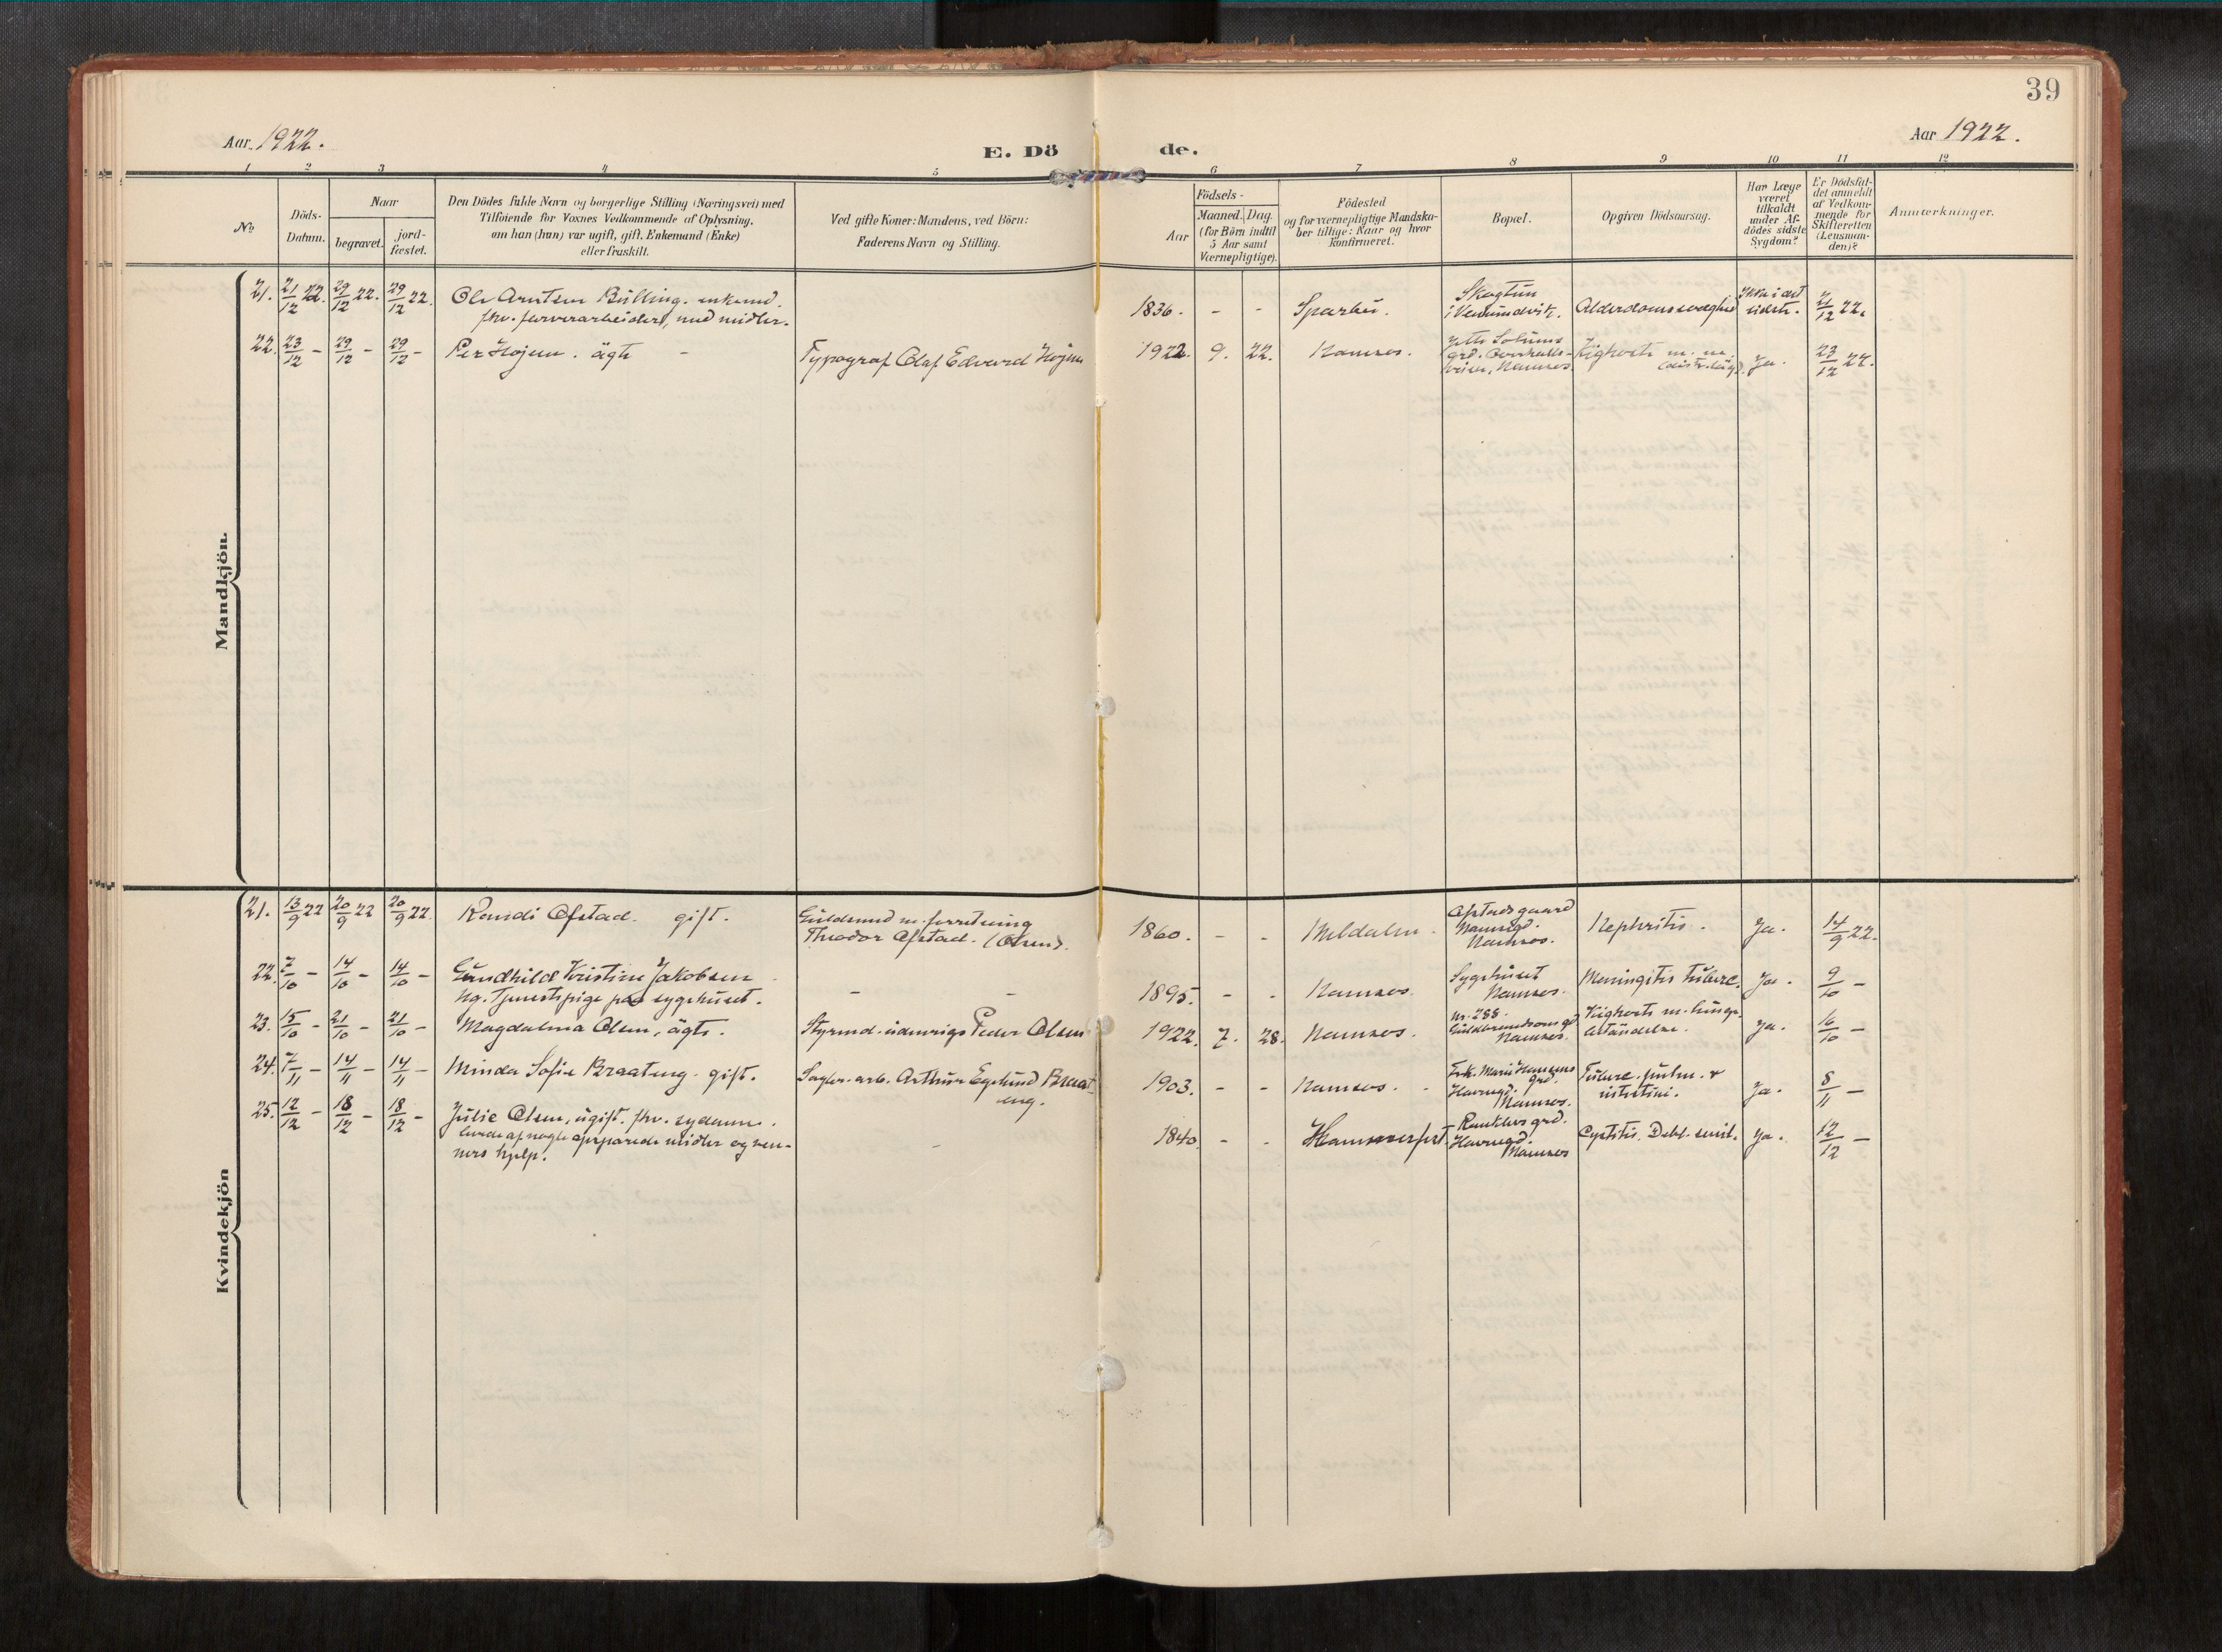 39
Aar 1922.
E. Dö de.
Aar 1922.
1 2 3 4 5 6 7 8 9 10 11 12
No
Döds-Datum.
Naar
begravet.
jord-fæstet.
Den Dödes fulde Navn og borgerlige Stilling (Næringsvei) med
Tilföiende for Voxnes Vedkommende af Oplysning.
om han (hun) var ugift, gift, Enkemand (Enke)
eller fraskilt.
Ved gifte Koner: Mandens, ved Börn:
Faderens Navn og Stilling.
Födsels-
Aar
Maaned. Dag.
(for Börn indtil
5 Aar samt
Værnepligtige).
Födested
og for værnepligtige Mandska-
ber tillige: Naar og hvor
konfirmeret.
Bopæl.
Opgiven Dödsaarsag.
Har Læge
været
tilkaldt
under Af-
dödes sidste
Sygdom?
Er Dödsfal-
det anmeldt
af Vedkom-
mende for
Skifteretten
(Lensman-
den)?
Anmærkninger.
Mandkjön.
21. 21/12 22. 29/12 22. 29/12 22. Ole Arntsen Bülling. enkemd. 1836. - - Sparbu. Skogtun Alderdomssvaghed Ikke i det 21/12 22.
fhv. farverarbeider, med midler. i Vemundvik. sidste.
22. 23/12 - 29/12 - 29/12 - Per Højem. ägte - Typograf Olaf Edvard Højem 1922. 9. 22. Namsos. Kighoste m. m. Ja. 23/12 22.
grd. Namsos.
Kvindekjön
21. 13/9 22 20/9 22 20/9 22. Randi Ofstad. gift. Guldsmed m. forretning 1860. - - Meldalen. Ofstadgaard Nephritis. Ja. 14/9 22.
Theodor Ofstad. (Olsen). Namsos.
22. 7/10 - 14/10 - 14/10 - Gundhild Kristine Jakobsen - - 1895. - - Namsos. Sygehuset Meningitis tuberc. Ja. 9/10 -
Ug. Tjenestepige paa sygehuset. Namsos.
23. 15/10 - 21/10 - 21/10 - Magdalena Olsen, ägte. Styrmd. udenrigs Peder Olsen 1922. 7. 28. Namsos. nr. 288. Kighoste m. lunge- Ja. 16/10 -
Guldbrandsons gd Namsos. betändelse.
24. 7/11 - 14/11 - 14/11 - Minda Sofie Braateng. gift. Sagbr. arb. Arthur Egelund Braat- 1903. - - Namsos. Frk. Marie Hansens Tuberc. pulm. & Ja. 8/11 -
eng. grd. Havnegd. Namsos. intestini.
25. 12/12 - 18/12 - 18/12 - Julie Olsen, ugift. fhv. sydame. - 1840. - - Hammerfest. grd. Cystitis. Debil. senil. Ja. 12/12 -
levede af nogle opsparede midler og ven- Havnegd.
ners hjelp. Namsos